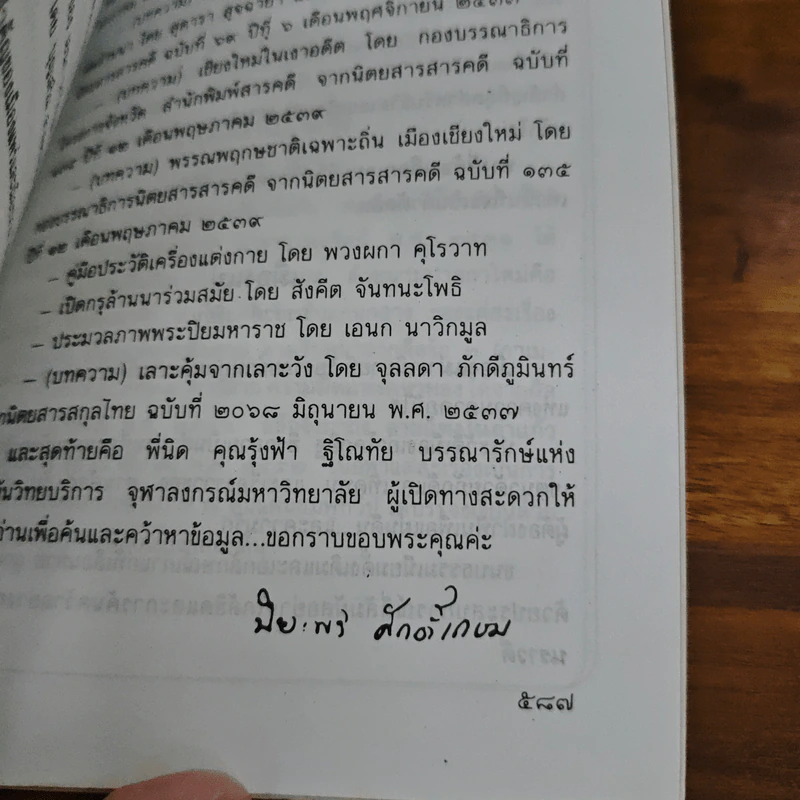 (บทความ)
โดย สุดารา สุจฉายา
สารคดี ฉบับที่ ๖๙ ปีที่ ๖ เดือนพฤศจิกายน ๒๕๓๓
– (บทความ) เชียงใหม่ในเงาอดีต โดย กองบรรณาธิการ
สำนักพิมพ์สารคดี จากนิตยสารสารคดี ฉบับที่
๑๓๕ ปีที่ ๑๒ เดือนพฤษภาคม ๒๕๓๙
– (บทความ) พรรณพฤกษชาติเฉพาะถิ่น เมืองเชียงใหม่ โดย
กองบรรณาธิการนิตยสารสารคดี จากนิตยสารสารคดี ฉบับที่ ๑๓๕
ปีที่ ๑๒ เดือนพฤษภาคม ๒๕๓๙
– คู่มือประวัติเครื่องแต่งกาย โดย พวงผกา คุโรวาท
– เปิดกรุล้านนาร่วมสมัย โดย สังคีต จันทนะโพธิ
– ประมวลภาพพระปิยมหาราช โดย เอนก นาวิกมูล
– (บทความ) เลาะคุ้มจากเลาะวัง โดย จุลลดา ภักดีภูมินทร์
นิตยสารสกุลไทย ฉบับที่ ๒๐๖๘ มิถุนายน พ.ศ. ๒๕๓๗
และสุดท้ายคือ พี่นิด คุณรุ้งฟ้า ฐิโณทัย บรรณารักษ์แห่ง
วิทยบริการ จุฬาลงกรณ์มหาวิทยาลัย ผู้เปิดทางสะดวกให้
เพื่อค้นและคว้าหาข้อมูล...ขอกราบขอบพระคุณค่ะ
ปิยะพร ศักดิ์เกษม
๕๘๗